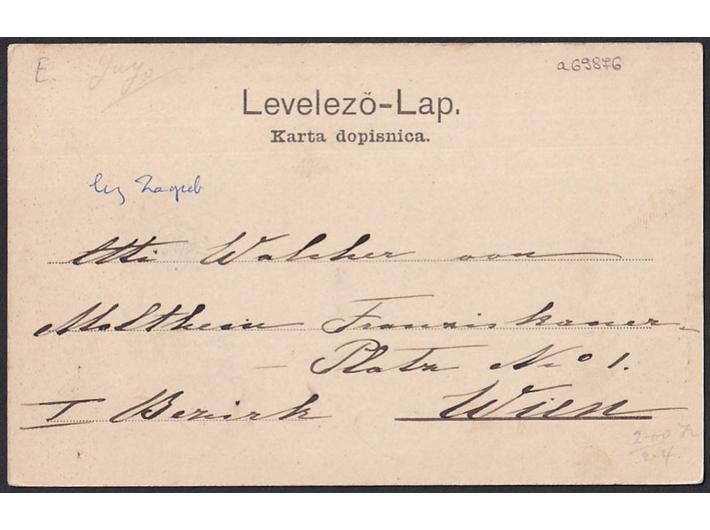 E.
a69876
Levelező-Lap.
Karta dopisnica.
Zagreb
Otti Walcher von
Moltheim Franziskaner-
Platz No 1.
I Bezirk Wien